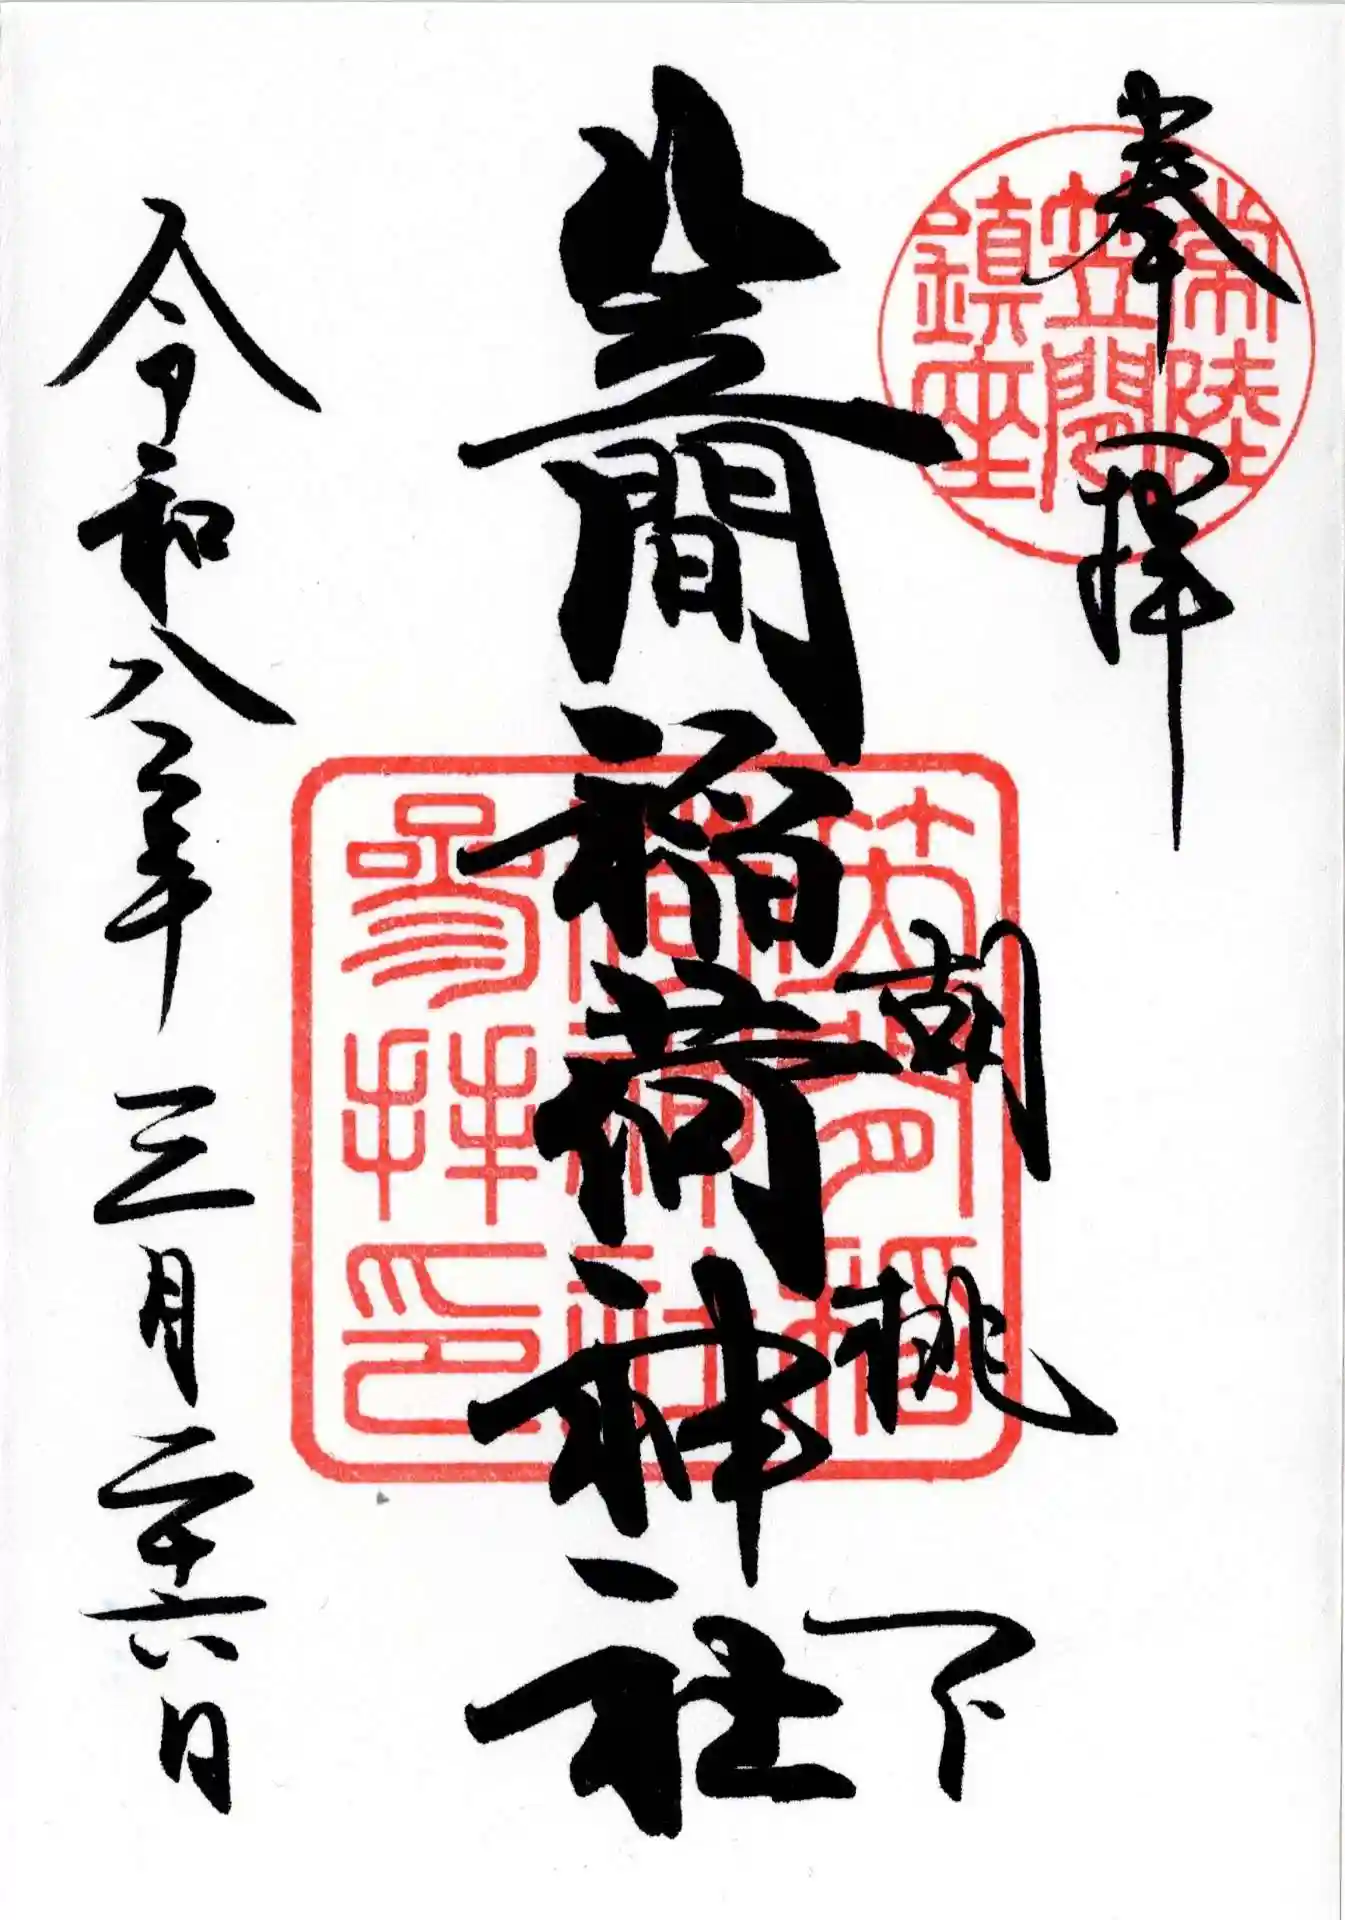 奉拝
常陸
笠間
鎮座
胡桃下
笠間稲荷神社
笠間稲
荷神社
参拝印
令和八年三月二十六日